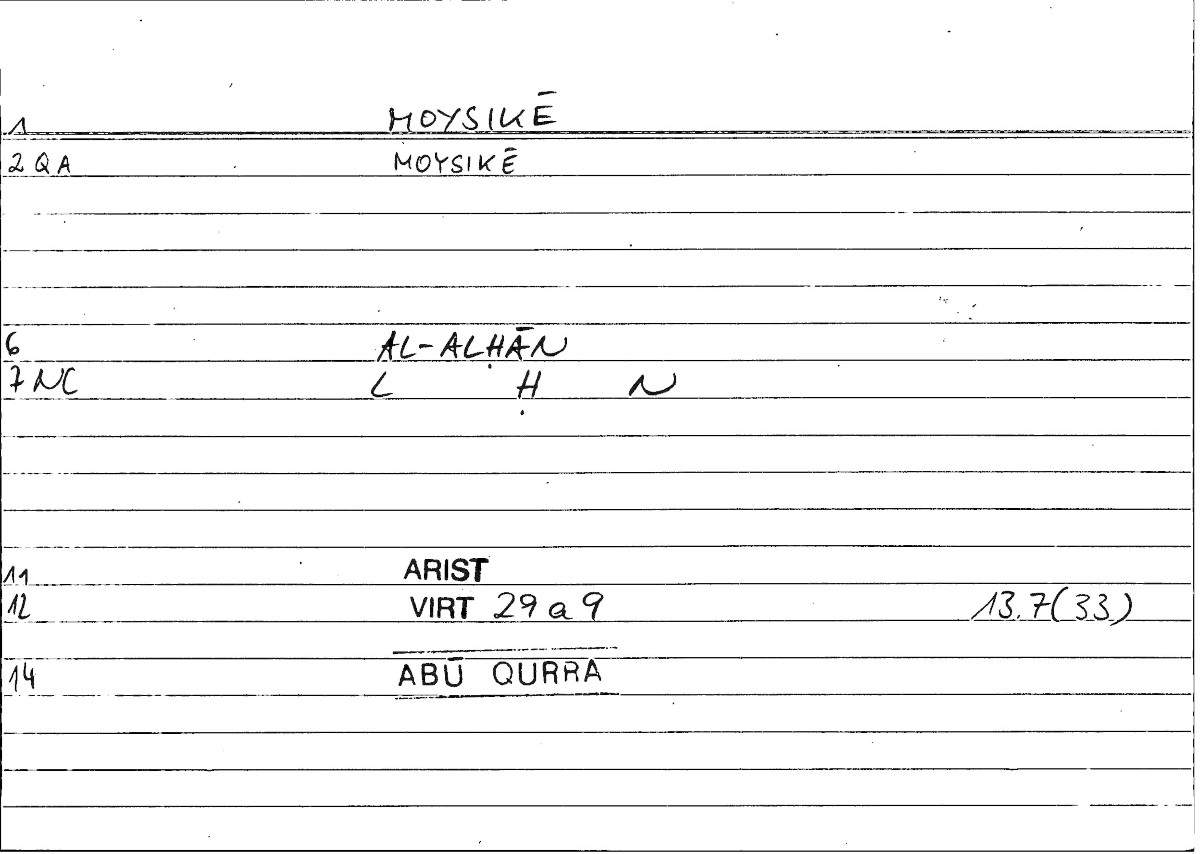 1 MOYSIKĒ
2 QA MOYSIKĒ
6 AL-ALḤĀN
7 NC L Ḥ N
11 ARIST
12 VIRT 29 a 9 13.7(33)
14 ABŪ QURRA